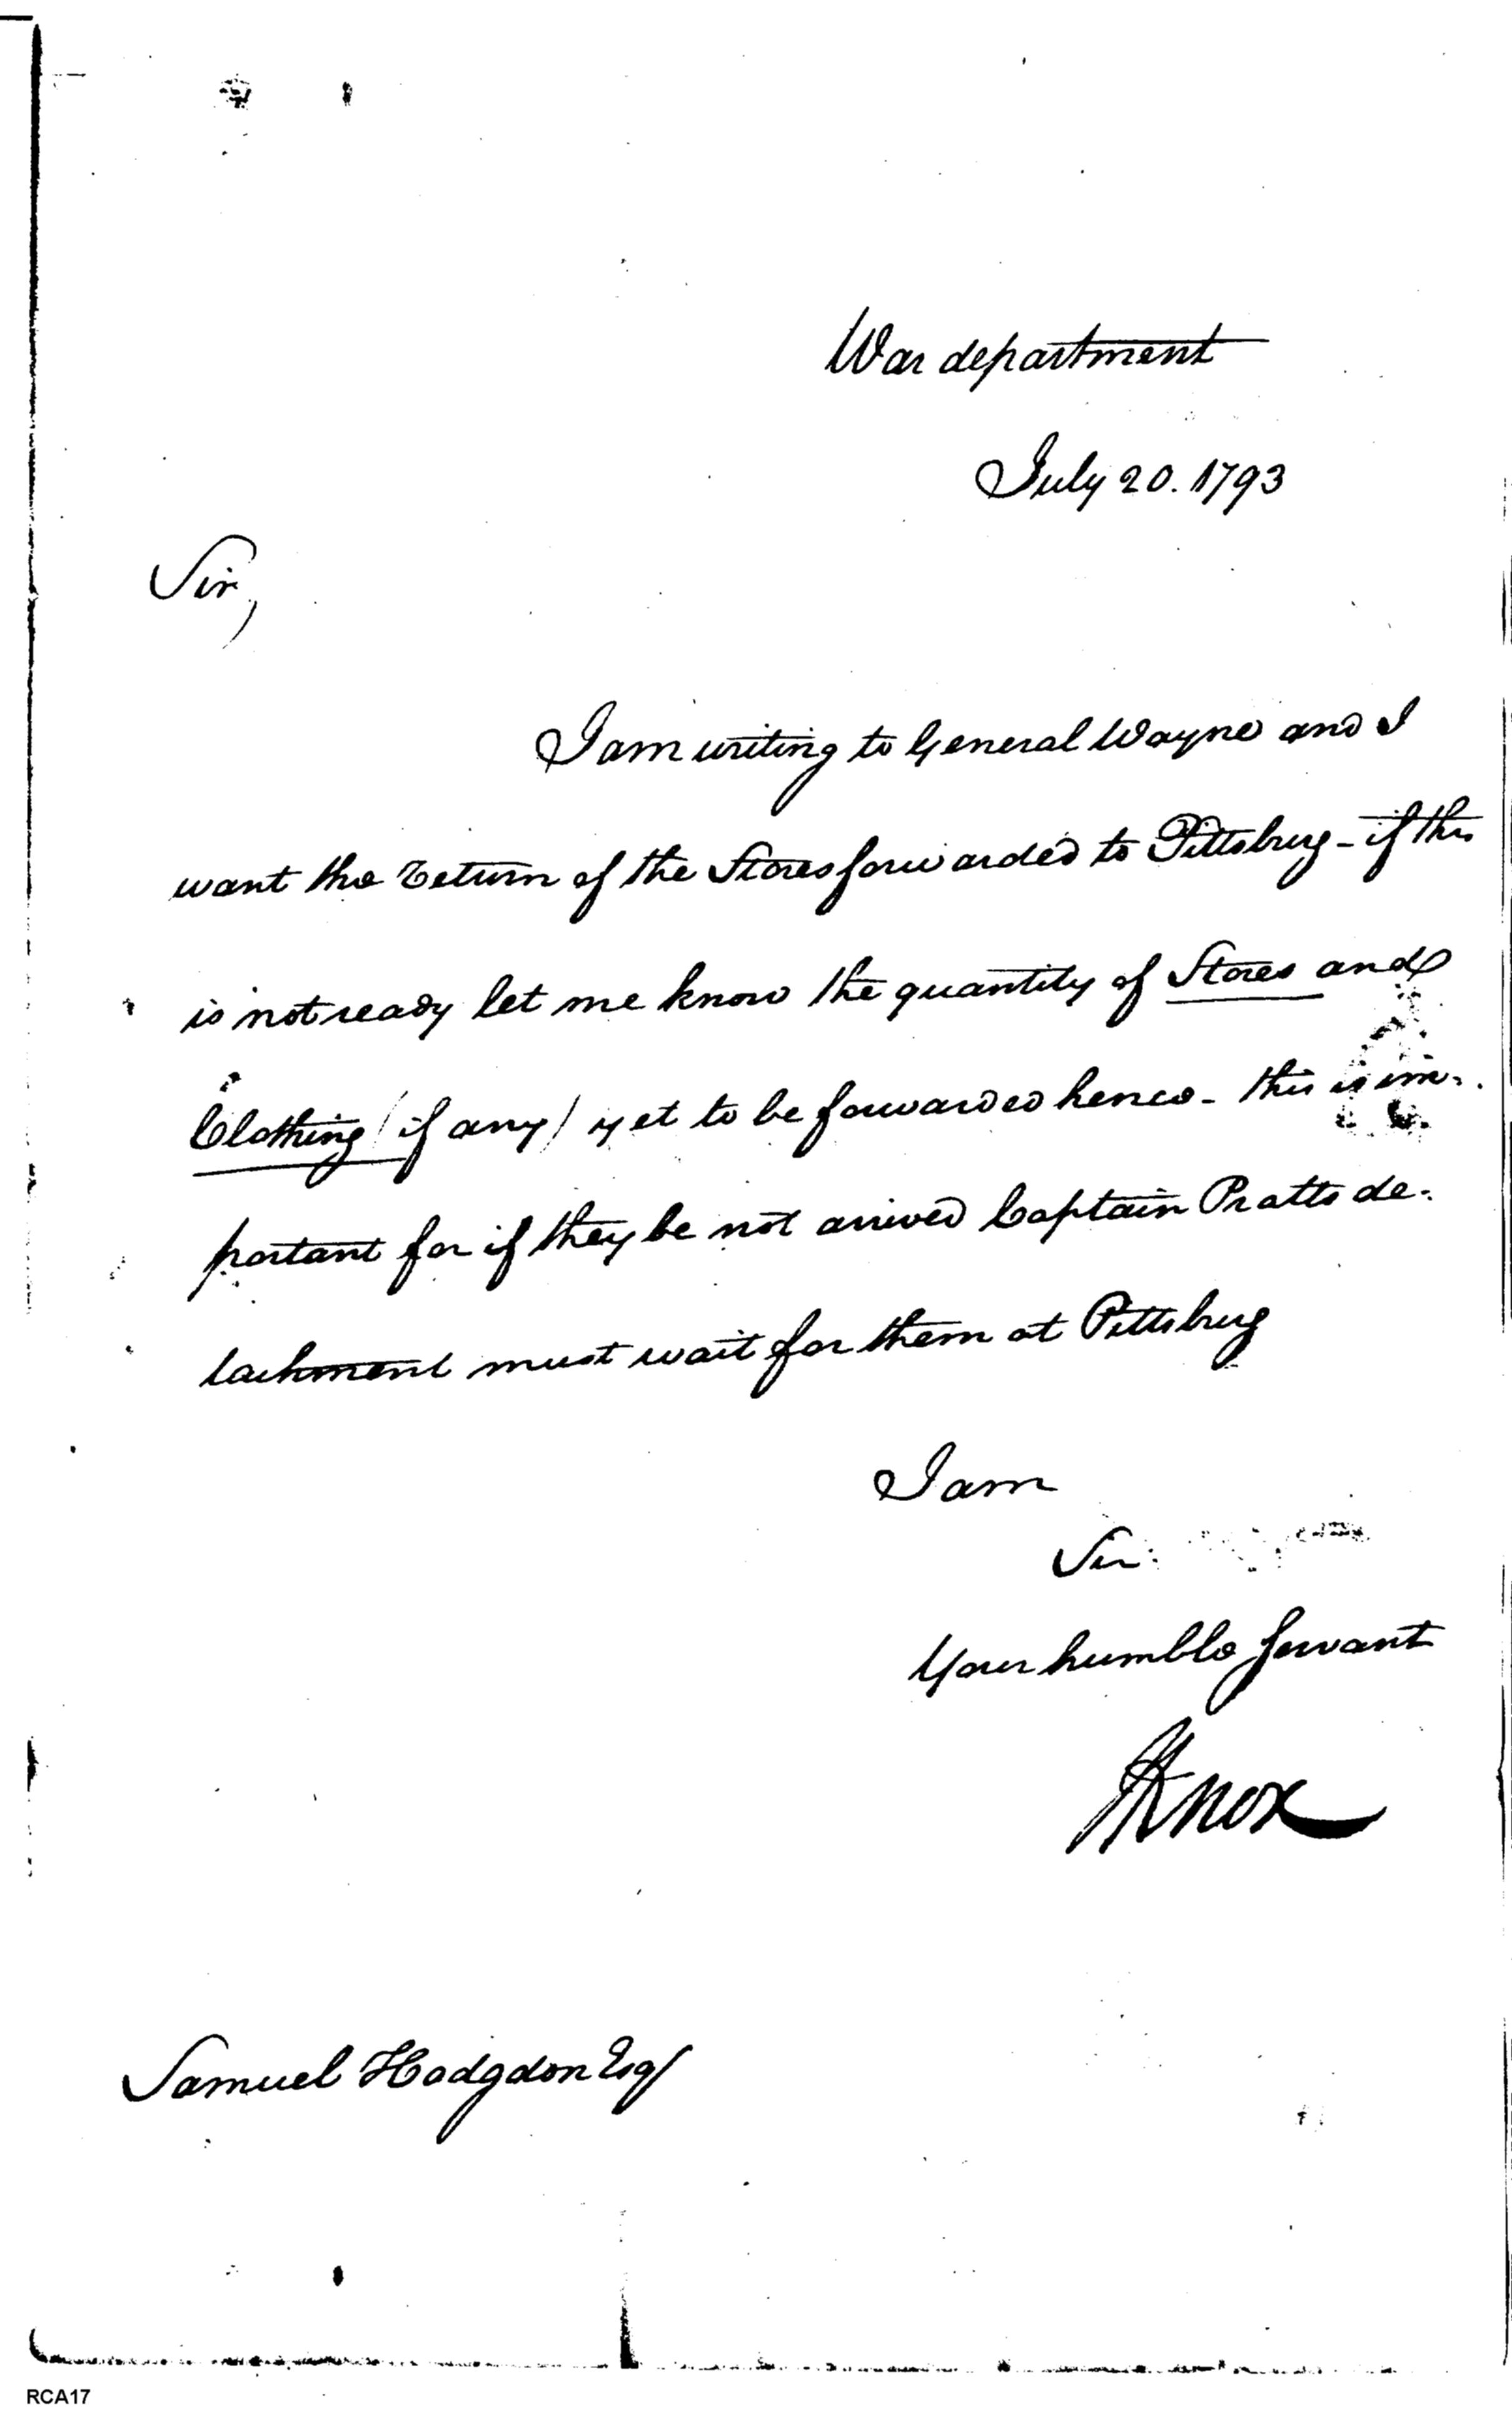 War department
July 20. 1793
Sir,
I am writing to General Wayne and I
want the return of the Stores forwarded to Pittsburg - if this
is not ready let me know the quantity of Stores and
Clothing (if any) yet to be forwarded hence - this is im-
portant for if they be not arrived Captain Pratts de-
tachment must wait for them at Pittsburg
I am
Sir
Your humble servant
HKnox
Samuel Hodgdon Esqr
RCA17